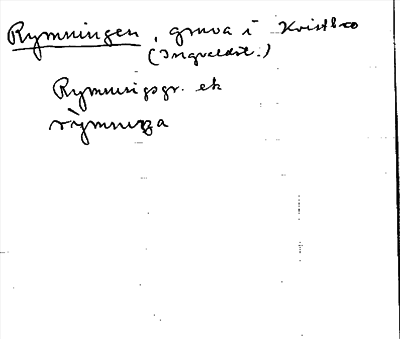 Rymningen, gruva i Kvistbro
(Ingveldst.)
Rymningsgr. ek
rỳmnıŋa